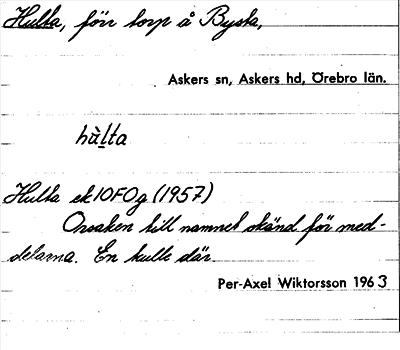 Hulta, förr torp å Bysta,
Askers sn, Askers hd, Örebro län.
hu̇lta
Hulta ek 10F0g (1957)
Orsaken till namnet okänd för med-
delarna. En kulle där.
Per-Axel Wiktorsson 1963